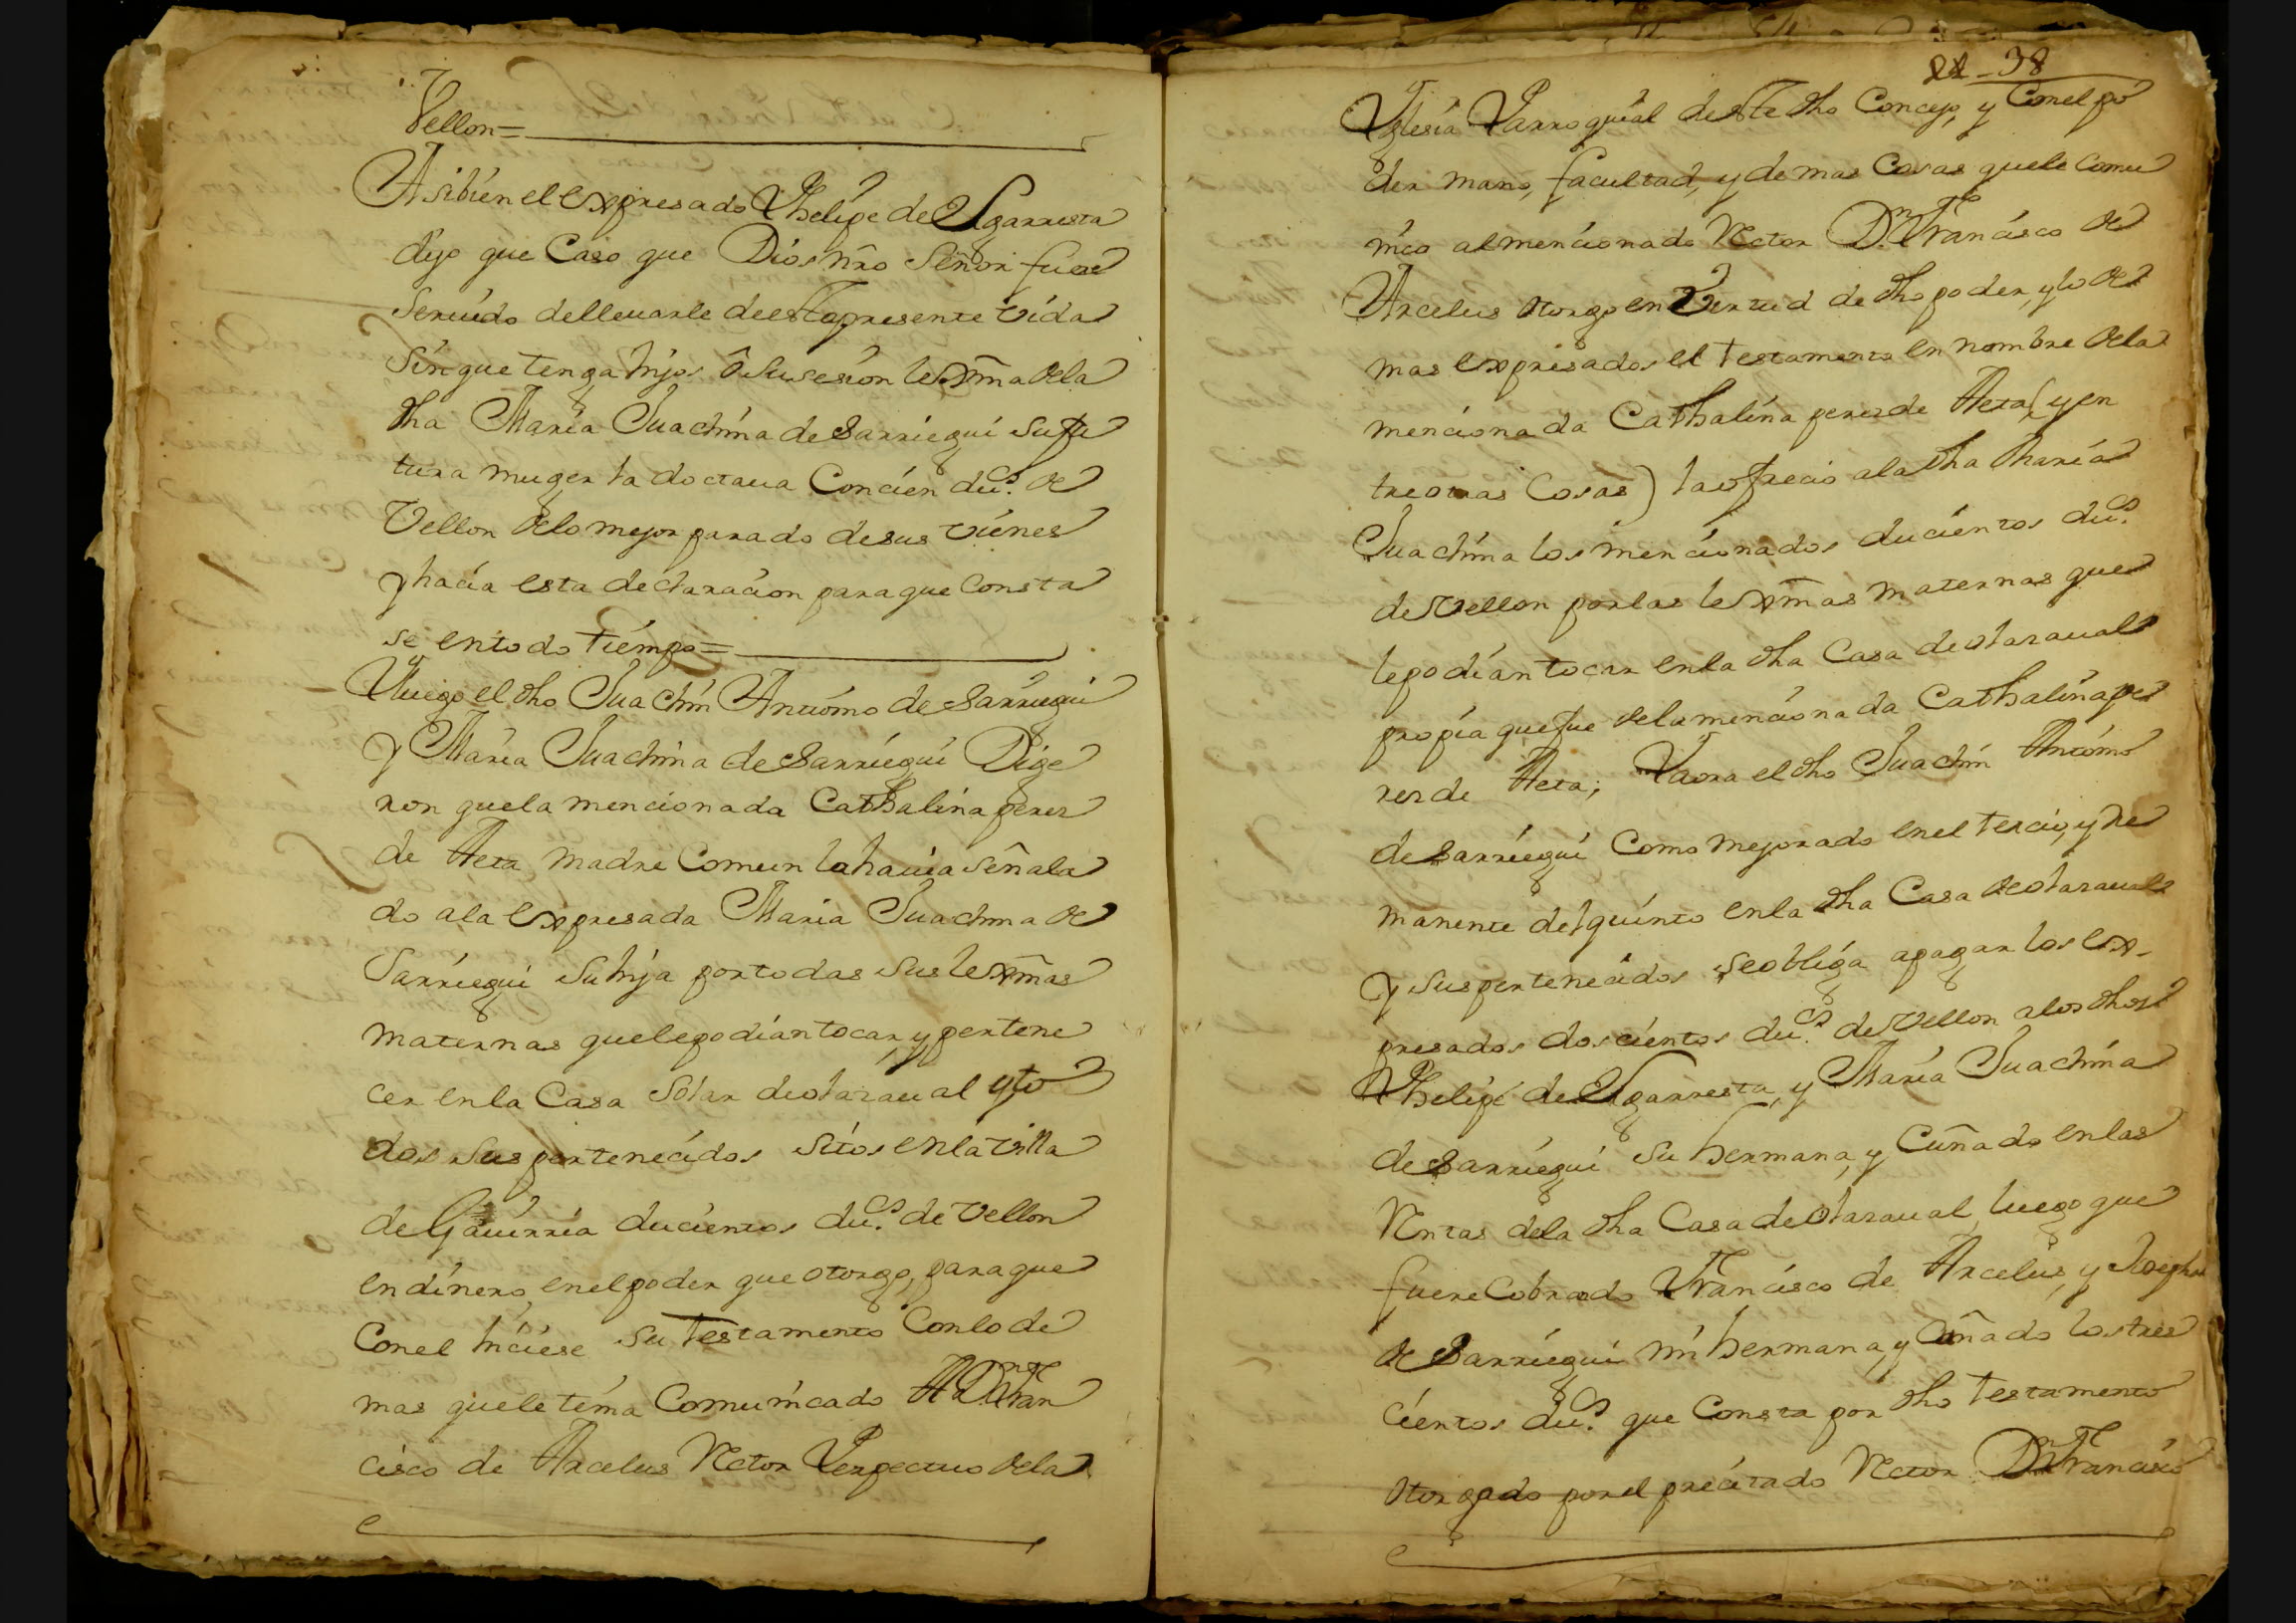 Vellon=
Asibien el expresado Phelipe de Ugarresta
dijo que Caso que Dios nro Señor fuere
seruido dellevarle deesta presente vida
sin que tenga hijos o susesion lexma dela
dha Maria Juachina de Sarriegui su fu
tura muger la doctaua Concien dus. de
Vellon delo mejor parado desus vienes
y hacia esta declaracion paraque Consta
se entodo tiempo=
Yluego el dho Juachin Antonio de Sarriegui
y Maria Juachina de Sarriegui Dige
ron quela mencionada Cathalina perez
de Aeta madre Comun la hauia señala
do ala expresada Maria Juachina de
Sarriegui su hija portodas sus lexmas
maternas quele podian tocar y pertene
cer enla Casa Solar de olaraual y to
dos sus pertenecidos sitos enla villa
de Gauirria ducientos dus. de vellon
en dinero, enel poder que otorgo, paraque
Conel hiciese su testamento Conlode
mas quele tenia Comunicado A Dn Fran
cisco de Arcelus Retor Perpectuo dela
22 - 38
Yglesia Parroquial deste dho Concejo, y Conel po
der mano, facultad, y demas Cosas quele comu
nico almencionado Retor Dn. Francisco de
Arcelus otorgo en Virtud de dho poder, y lo de
mas expresados el testamento en nombre dela
mencionada Cathalina perez de Aeta, (y en
tre otras Cosas) la ofrecio ala dha Maria
Juachina los mencionados ducientos dus.
de vellon por las lexmas maternas que
le podian tocar enla dha Casa de olaraual
propia que fue dela mencionada Cathalina pe
rez de Aeta; Yaora el dho Juachin Antonio
de Sarriegui Como mejorado enel tercio, y Re
manente del quinto enla dha Casa de olaraual
y sus pertenecidos se obliga apagar los ex-
presados doscientos dus. de vellon alos dhos
Phelipe de Ugarresta, y Maria Juachina
de Sarriegui su hermana, y Cuñado enlas
Rentas dela dha Casa de olaraual, luego que
fuere Cobrado Francisco de Arcelus, y
de Sarriegui mi hermana, y Cuñado los tres
cientos dus. que Consta por dho testamento
otorgado por el precitado Retor Dn Francisco